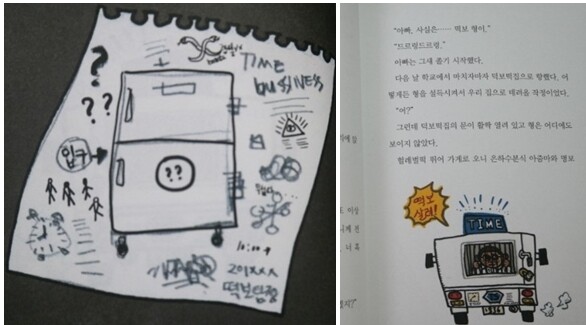 TIME
BUSINESS
??
?
입구
??
10:00
201XXX
떡보탐정
"아빠, 사실은── 떡보 형이."
"드르렁드르렁."
아빠는 그새 졸기 시작했다.
다음 날 학교에서 마치자마자 떡보빅집으로 향했다. 어
떻게든 형을 설득시켜서 우리 집으로 데려올 작정이었다.
"어?"
그런데 떡보빅집의 문이 활짝 열려 있고 형은 어디에도
보이지 않았다.
헐레벌떡 뛰어 가게로 오니 은하수분식 아줌마와 명보
떡보
살려!
TIME